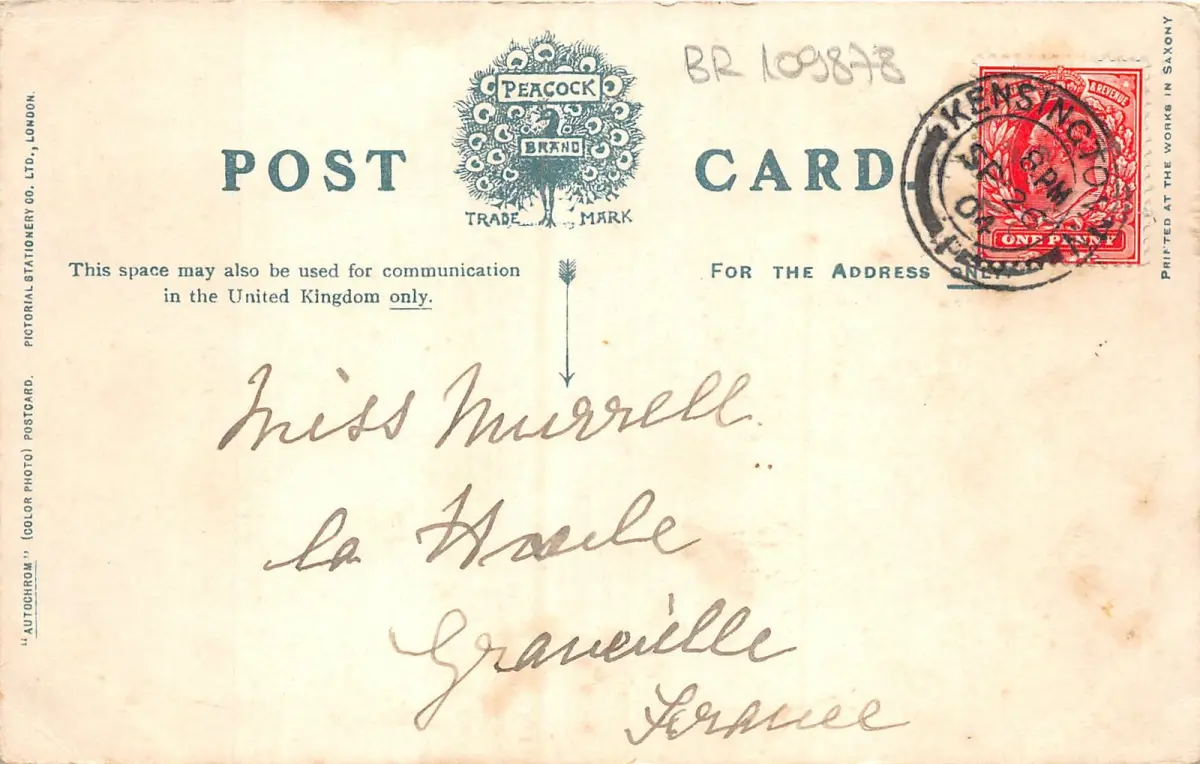 BR 109878
PEACOCK
BRAND
TRADE MARK
POST CARD
KENSINGTON
8 PM
SP 2
04
REVENUE
ONE PENNY
This space may also be used for communication
in the United Kingdom only.
FOR THE ADDRESS ONLY
Miss Murrell
la Houle
Granville
France
"AUTOCHROM" (COLOR PHOTO) POSTCARD. PICTORIAL STATIONERY CO. LTD., LONDON.
PRINTED AT THE WORKS IN SAXONY